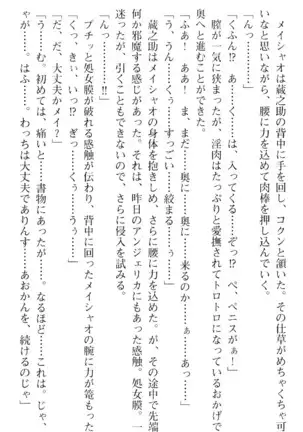 メイシャオは蔵之助の背中に手を回し、コクンと頷いた。その仕草がめちゃくちゃ可愛いなと思いながら、腰に力を込めて肉棒を押し込んでいく。
「くふん!? あ、ぁ……くは……は、入ってくる……ぞっ!? ぺ、ペニスがぁ!」
膣が一気に狭まったが、淫肉はたっぷりと愛撫されてトロトロになっているおかげで奥へと進むことができる。
「ふぁ! あぁっ! ま、まだ……奥に……奥に……来るのか……はぁ……あっ……」
「う、うん、くぅ……すっごい……絞まるぅ……う」
蔵之助はメイシャオの身体を抱きしめ、さらに腰に力を込めた。が、その途中で先端に何か邪魔する感じがあった。それは、昨日のアンジェリカにもあった感触。処女膜。一瞬迷ったが、引くこともできないので、さらに侵入を試みる。
「んっ……んっ……………!!」
プチッと処女膜が破れる感触が伝わり、背中に回ったメイシャオの腕に力が篭もった。
「くっ、きぃ、いっっ!? ぎっ……くぅ……うぅ……」
「だ、だ、大丈夫かメイ?」
「がっ……む、初めては、痛いと……書物にあったが……、なるほど……これは。じゃ、がぁっ……。はふ……。わっちは大丈夫でありんす……あおかんを、続けるのじゃ」